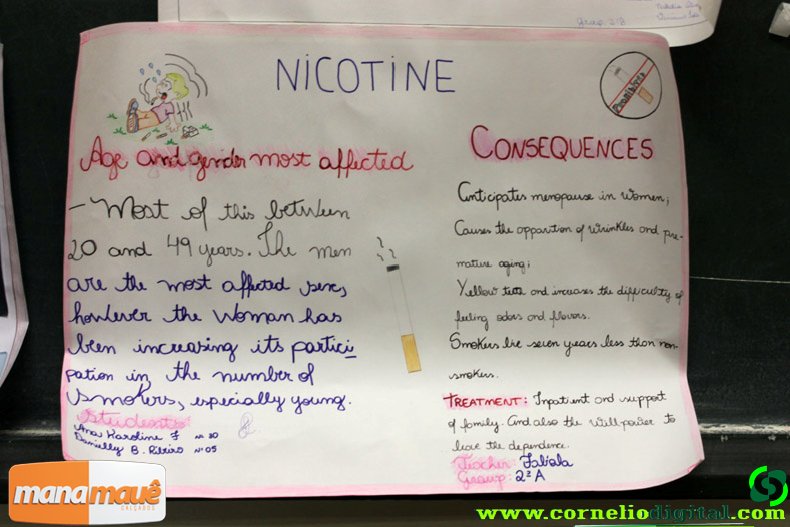 NICOTINE
Prohibited
Age and gender most affected
- Most of this between
20 and 49 years. The men
are the most affected sex,
however the woman has
been increasing its partici
pation in the number of
smokers, especially young.
Students:
Ana Karoline F nº 30
Danielly B. Ribeiro nº 05
CONSEQUENCES
Anticipates menopause in women;
Causes the apparition of wrinkles and pre-
mature aging;
Yellow teeth and increases the difficulty of
feeling odors and flavors.
Smokers live seven years less than non-
smokers.
TREATMENT: Inpatient and support
of family. And also the willpower to
leave the dependence.
Teacher: Fabiola
Group: 2ª A
manamauê
CALÇADOS
www.corneliodigital.com